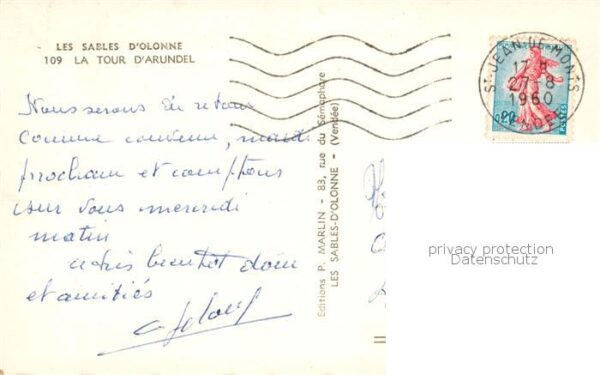 LES SABLES D'OLONNE
109 LA TOUR D'ARUNDEL
Nous serons de retour
comme convenu, mardi
prochain et comptons
sur vous mercredi
matin
à très bientôt donc
et amitiés
Editions P. MARLIN - 83, rue du Sémaphore
LES SABLES-D'OLONNE - (Vendée)
ST JEAN-DE-MONTS
17 H
27-8
1960
VENDEE
privacy protection
Datenschutz